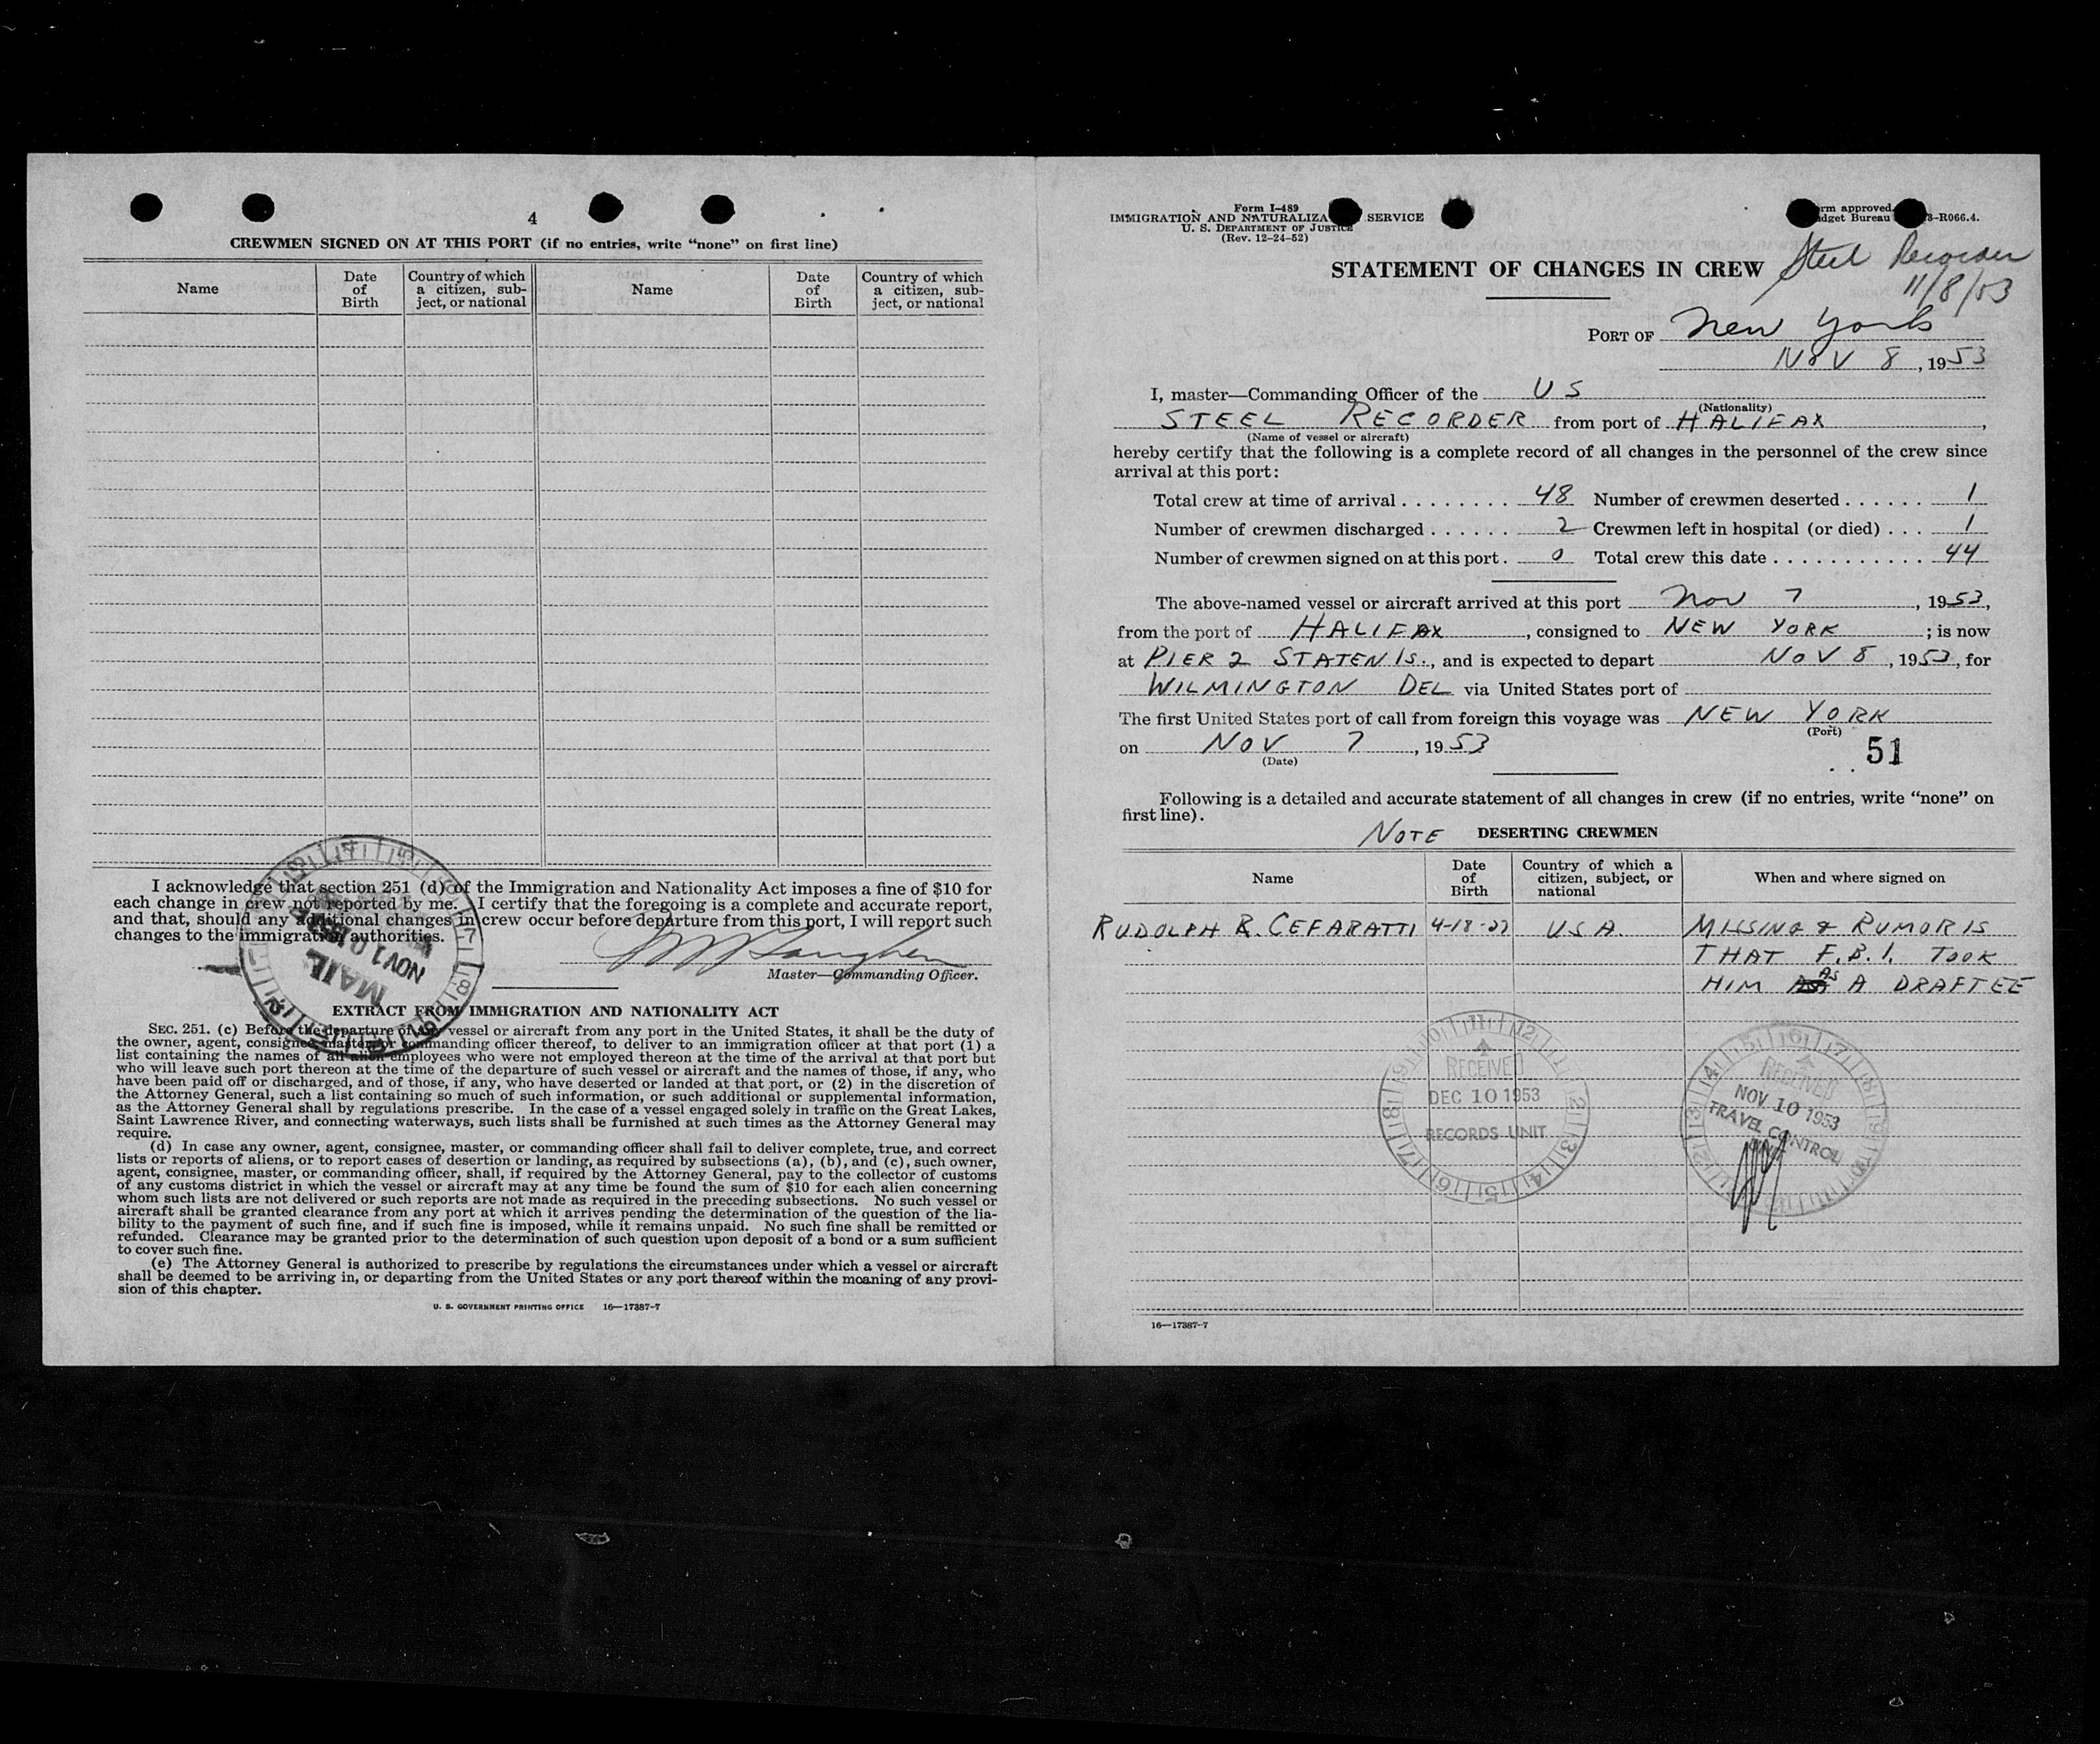 4
CREWMEN SIGNED ON AT THIS PORT (if no entries, write “none” on first line)
Name
Date of Birth
Country of which a citizen, subject, or national
Name
Date of Birth
Country of which a citizen, subject, or national
I acknowledge that section 251 (d) of the Immigration and Nationality Act imposes a fine of $10 for
each change in crew not reported by me. I certify that the foregoing is a complete and accurate report,
and that, should any additional changes in crew occur before departure from this port, I will report such
changes to the immigration authorities.
Master—Commanding Officer.
MAIL
NOV 10
EXTRACT FROM IMMIGRATION AND NATIONALITY ACT
SEC. 251. (c) Before the departure of any vessel or aircraft from any port in the United States, it shall be the duty of
the owner, agent, consignee, master, or commanding officer thereof, to deliver to an immigration officer at that port (1) a
list containing the names of all alien employees who were not employed thereon at the time of the arrival at that port but
who will leave such port thereon at the time of the departure of such vessel or aircraft and the names of those, if any, who
have been paid off or discharged, and of those, if any, who have deserted or landed at that port, or (2) in the discretion of
the Attorney General, such a list containing so much of such information, or such additional or supplemental information,
as the Attorney General shall by regulations prescribe. In the case of a vessel engaged solely in traffic on the Great Lakes,
Saint Lawrence River, and connecting waterways, such lists shall be furnished at such times as the Attorney General may
require.
(d) In case any owner, agent, consignee, master, or commanding officer shall fail to deliver complete, true, and correct
lists or reports of aliens, or to report cases of desertion or landing, as required by subsections (a), (b), and (c), such owner,
agent, consignee, master, or commanding officer, shall, if required by the Attorney General, pay to the collector of customs
of any customs district in which the vessel or aircraft may at any time be found the sum of $10 for each alien concerning
whom such lists are not delivered or such reports are not made as required in the preceding subsections. No such vessel or
aircraft shall be granted clearance from any port at which it arrives pending the determination of the question of the lia-
bility to the payment of such fine, and if such fine is imposed, while it remains unpaid. No such fine shall be remitted or
refunded. Clearance may be granted prior to the determination of such question upon deposit of a bond or a sum sufficient
to cover such fine.
(e) The Attorney General is authorized to prescribe by regulations the circumstances under which a vessel or aircraft
shall be deemed to be arriving in, or departing from the United States or any port thereof within the meaning of any provi-
sion of this chapter.
U. S. GOVERNMENT PRINTING OFFICE 16—17387-7
Form I-489
IMMIGRATION AND NATURALIZA SERVICE
U. S. DEPARTMENT OF JUSTICE
(Rev. 12-24-52)
rm approved.
dget Bureau 3-R066.4.
Steel Recorder
11/8/53
STATEMENT OF CHANGES IN CREW
PORT OF New York
NOV 8, 1953
I, master—Commanding Officer of the US
(Nationality)
STEEL RECORDER from port of HALIFAX,
(Name of vessel or aircraft)
hereby certify that the following is a complete record of all changes in the personnel of the crew since
arrival at this port:
Total crew at time of arrival . . . . . . . . . 48 Number of crewmen deserted . . . . . . 1
Number of crewmen discharged . . . . . . 2 Crewmen left in hospital (or died) . . . 1
Number of crewmen signed on at this port . 0 Total crew this date . . . . . . . . . . . . 44
The above-named vessel or aircraft arrived at this port Nov 7, 1953,
from the port of HALIFAX, consigned to NEW YORK; is now
at PIER 2 STATEN IS., and is expected to depart NOV 8, 1953, for
WILMINGTON DEL via United States port of
The first United States port of call from foreign this voyage was NEW YORK
(Port)
on NOV 7, 1953
(Date)
51
Following is a detailed and accurate statement of all changes in crew (if no entries, write “none” on
first line).
NOTE DESERTING CREWMEN
Name
Date of Birth
Country of which a citizen, subject, or national
When and where signed on
RUDOLPH R. CEFARATTI 4-18-27 USA. MISSING & RUMOR IS
THAT F.B.I. TOOK
HIM AS A DRAFTEE
RECEIVED
DEC 10 1953
RECORDS UNIT
RECEIVED
NOV 10 1953
TRAVEL CONTROL
UNIT
16—17387-7